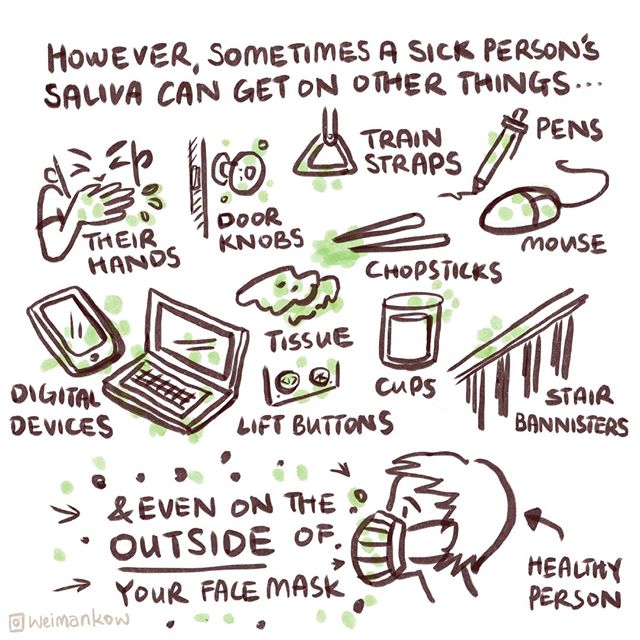 HOWEVER, SOMETIMES A SICK PERSON'S
SALIVA CAN GET ON OTHER THINGS...
THEIR
HANDS
DOOR
KNOBS
TRAIN
STRAPS
PENS
MOUSE
CHOPSTICKS
DIGITAL
DEVICES
TISSUE
LIFT BUTTONS
CUPS
STAIR
BANNISTERS
& EVEN ON THE
OUTSIDE OF
YOUR FACE MASK
HEALTHY
PERSON
@weimankow